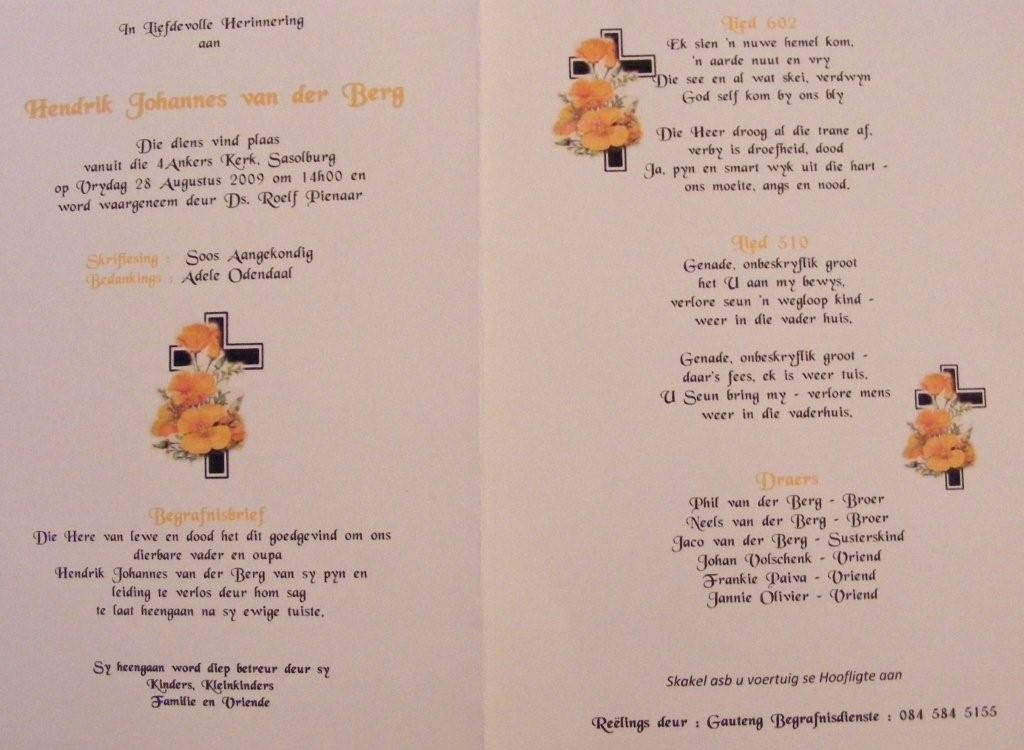 In Liefdevolle Herinnering
aan
Hendrik Johannes van der Berg
Die diens vind plaas
vanuit die 4Ankers Kerk, Sasolburg
op Vrydag 28 Augustus 2009 om 14h00 en
word waargeneem deur Ds. Roelf Pienaar
Skriflesing : Soos Aangekondig
Bedankings : Adele Odendaal
Begrafnisbrief
Die Here van lewe en dood het dit goedgevind om ons
dierbare vader en oupa
Hendrik Johannes van der Berg van sy pyn en
leiding te verlos deur hom sag
te laat heengaan na sy ewige tuiste.
Sy heengaan word diep betreur deur sy
Kinders, Kleinkinders
Familie en Vriende
Lied 602
Ek sien 'n nuwe hemel kom,
'n aarde nuut en vry
Die see en al wat skei, verdwyn
God self kom by ons bly
Die Heer droog al die trane af,
verby is droefheid, dood
Ja, pyn en smart wyk uit die hart -
ons moeite, angs en nood.
Lied 510
Genade, onbeskryflik groot
het U aan my bewys,
verlore seun 'n wegloop kind -
weer in die vader huis.
Genade, onbeskryflik groot -
daar's fees, ek is weer tuis.
U Seun bring my - verlore mens
weer in die vaderhuis.
Draers
Phil van der Berg - Broer
Neels van der Berg - Broer
Jaco van der Berg - Susterskind
Johan Volschenk - Vriend
Frankie Paiva - Vriend
Jannie Olivier - Vriend
Skakel asb u voertuig se Hoofligte aan
Reëlings deur : Gauteng Begrafnisdienste : 084 584 5155